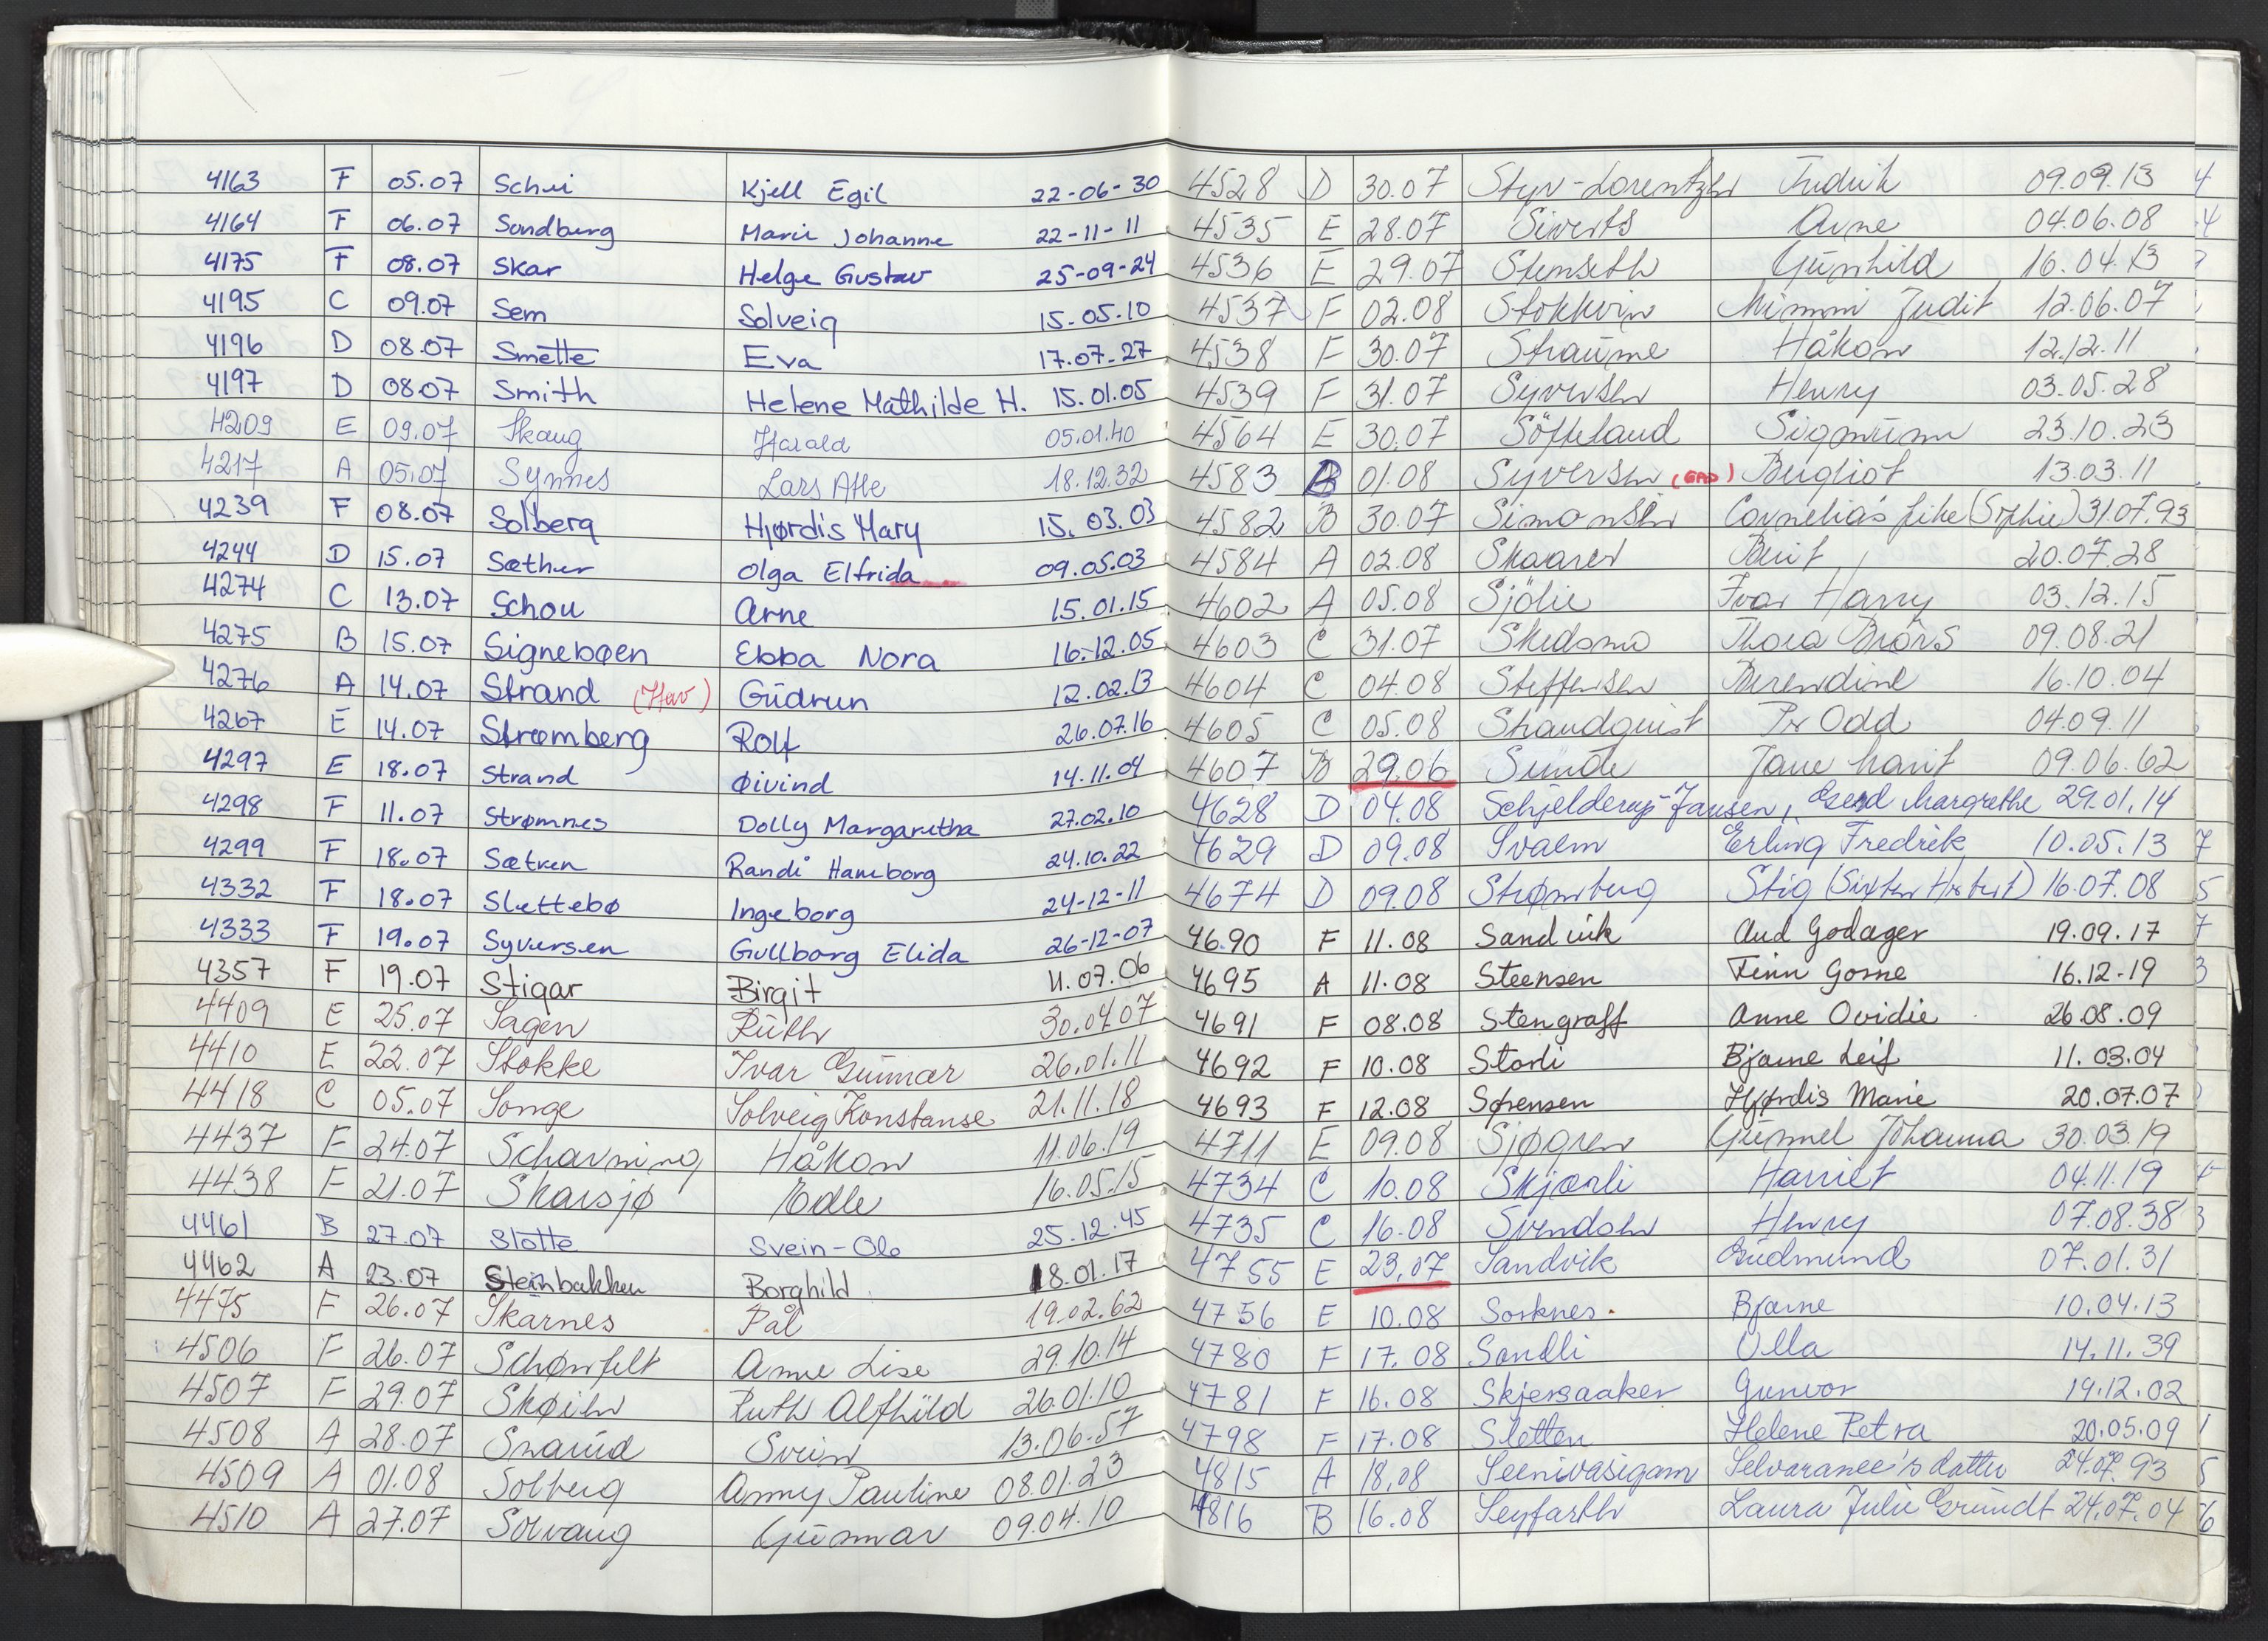 4163 F 05.07 Schei Kjell Egil 22-06-30
4164 F 06.07 Sundburg Marie Johanne 22-11-11
4175 F 08.07 Skar Helge Gustav 25-09-24
4195 C 09.07 Sem Solveig 15.05.10
4196 D 08.07 Smette Eva 17.07.27
4197 D 08.07 Smith Helene Mathilde H. 15.01.05
4209 E 09.07 Skaug Harald 05.01.40
4217 A 05.07 Synnes Lars Atle 18.12.32
4239 F 08.07 Solberg Hjørdis Mary 15.03.03
4244 D 15.07 Sæther Olga Elfrida 09.05.03
4274 C 13.07 Schou Arne 15.01.15
4275 B 15.07 Signebøen Ebba Nora 16.12.05
4276 A 14.07 Strand (Hav) Gudrun 12.02.13
4267 E 14.07 Strømberg Rolf 26.07.16
4297 E 18.07 Strand Øivind 14.11.04
4298 F 11.07 Strømnes Dolly Margaretha 27.02.10
4299 F 18.07 Sætren Randi Hamborg 24.10.22
4332 F 18.07 Slettebø Ingeborg 24-12-11
4333 F 19.07 Syversen Gullborg Elida 26-12-07
4357 F 19.07 Stigar Birgit 11.07.06
4409 E 25.07 Sagen Ruth 30.04.07
4410 E 22.07 Stokke Ivar Gunnar 26.01.11
4418 C 05.07 Songe Solveig Konstanse 21.11.18
4437 F 24.07 Schavning Håkon 11.06.19
4438 F 21.07 Skarsjø Edle 16.05.15
4461 B 27.07 Slotte Svein-Olo 25.12.45
4462 A 23.07 Steinbakken Borghild 18.01.17
4475 F 26.07 Skarnes Pål 19.02.62
4506 F 26.07 Schønfelt Anne Lise 29.10.14
4507 F 29.07 Skøien Ruth Alfhild 26.01.10
4508 A 28.07 Snarud Svein 13.06.57
4509 A 01.08 Solberg Anny Pauline 08.01.23
4510 A 27.07 Solvang Gunnar 09.04.10
4528 D 30.07 Styr-Lorentzen Fredrik 09.09.13
4535 E 28.07 Siverts Arne 04.06.08
4536 E 29.07 Stenseth Gunhild 16.04.13
4537 F 02.08 Stokkvin Mimmi Judit 12.06.07
4538 F 30.07 Straume Håkon 12.12.11
4539 F 31.07 Syversen Henry 03.05.28
4564 E 30.07 Söfteland Sigmunn 23.10.23
4583 B 01.08 Syversen Bergliot 13.03.11
4582 B 30.07 Simonsen Cornelia's pike (Sophie) 31.07.93
4584 A 02.08 Skaaret Berit 20.07.28
4602 A 05.08 Sjölie Ivar Harry 03.12.15
4603 C 31.07 Skedsmo Thora Brörs 09.08.21
4604 C 04.08 Steffensen Berendine 16.10.04
4605 C 05.08 Strandquist Pr Odd 04.09.11
4607 B 29.06 Sunde Jane Marit 09.06.62
4628 D 04.08 Schjelderup-Jansen, Gerd Margrethe 29.01.14
4629 D 09.08 Svaem Erling Fredrik 10.05.13
4674 D 09.08 Strømberg Stig (Sixten Herbert) 16.07.08
4690 F 11.08 Sandvik Aud Godager 19.09.17
4695 A 11.08 Steensen Finn Gorne 16.12.19
4691 F 08.08 Stengraff Anne Ovidie 26.08.09
4692 F 10.08 Storli Bjarne Leif 11.03.04
4693 F 12.08 Sørensen Hjørdis Marie 20.07.07
4711 E 09.08 Sjøgren Gunnel Johanna 30.03.19
4734 C 10.08 Skjærli Harriet 04.11.19
4735 C 16.08 Svendsen Henry 07.08.38
4755 E 23.07 Sandvik Gudmund 07.01.31
4756 E 10.08 Sorknes Bjarne 10.04.13
4780 F 17.08 Sandli Ulla 14.11.39
4781 F 16.08 Skjersaaker Gunvor 19.12.02
4798 F 17.08 Sletten Helene Petra 20.05.09
4815 A 18.08 Seenivasigam Selvaranee's datter 24.07.93
4816 B 16.08 Seyfarth Laura Julie Grundt 24.07.04